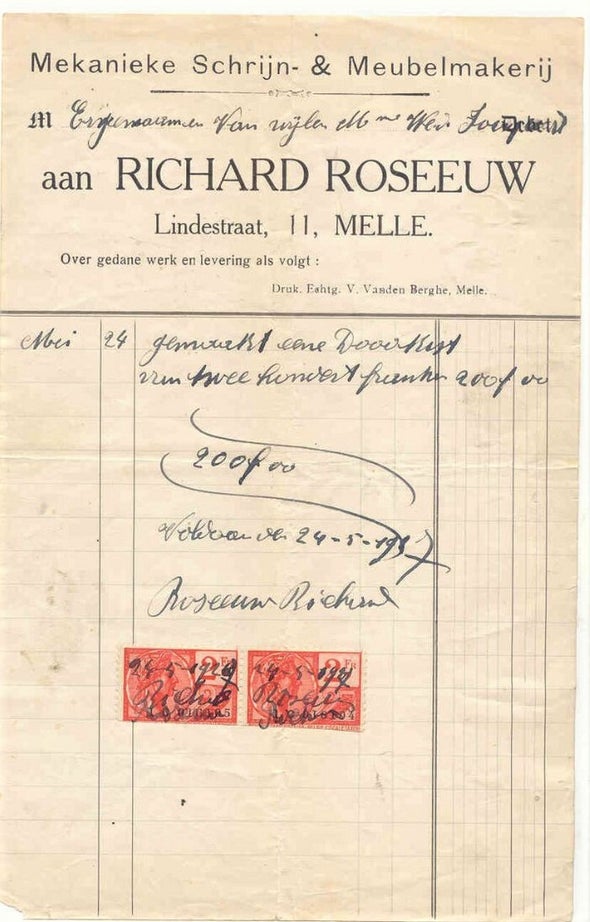 Mekanieke Schrijn- & Meubelmakerij
M Erfgenaamen Van wijlen Mme Wwe Debet
aan RICHARD ROSEEUW
Lindestraat, 11, MELLE.
Over gedane werk en levering als volgt :
Druk. Eshtg. V. Vanden Berghe, Melle.
Mei 24 gemaakt eene Doodkist
van twee hondert franken 200f 00
200f 00
Voldaan den 24-5-1927
Roseeuw Richard
24-5-1927 24-5-1927
2 FR 2 FR